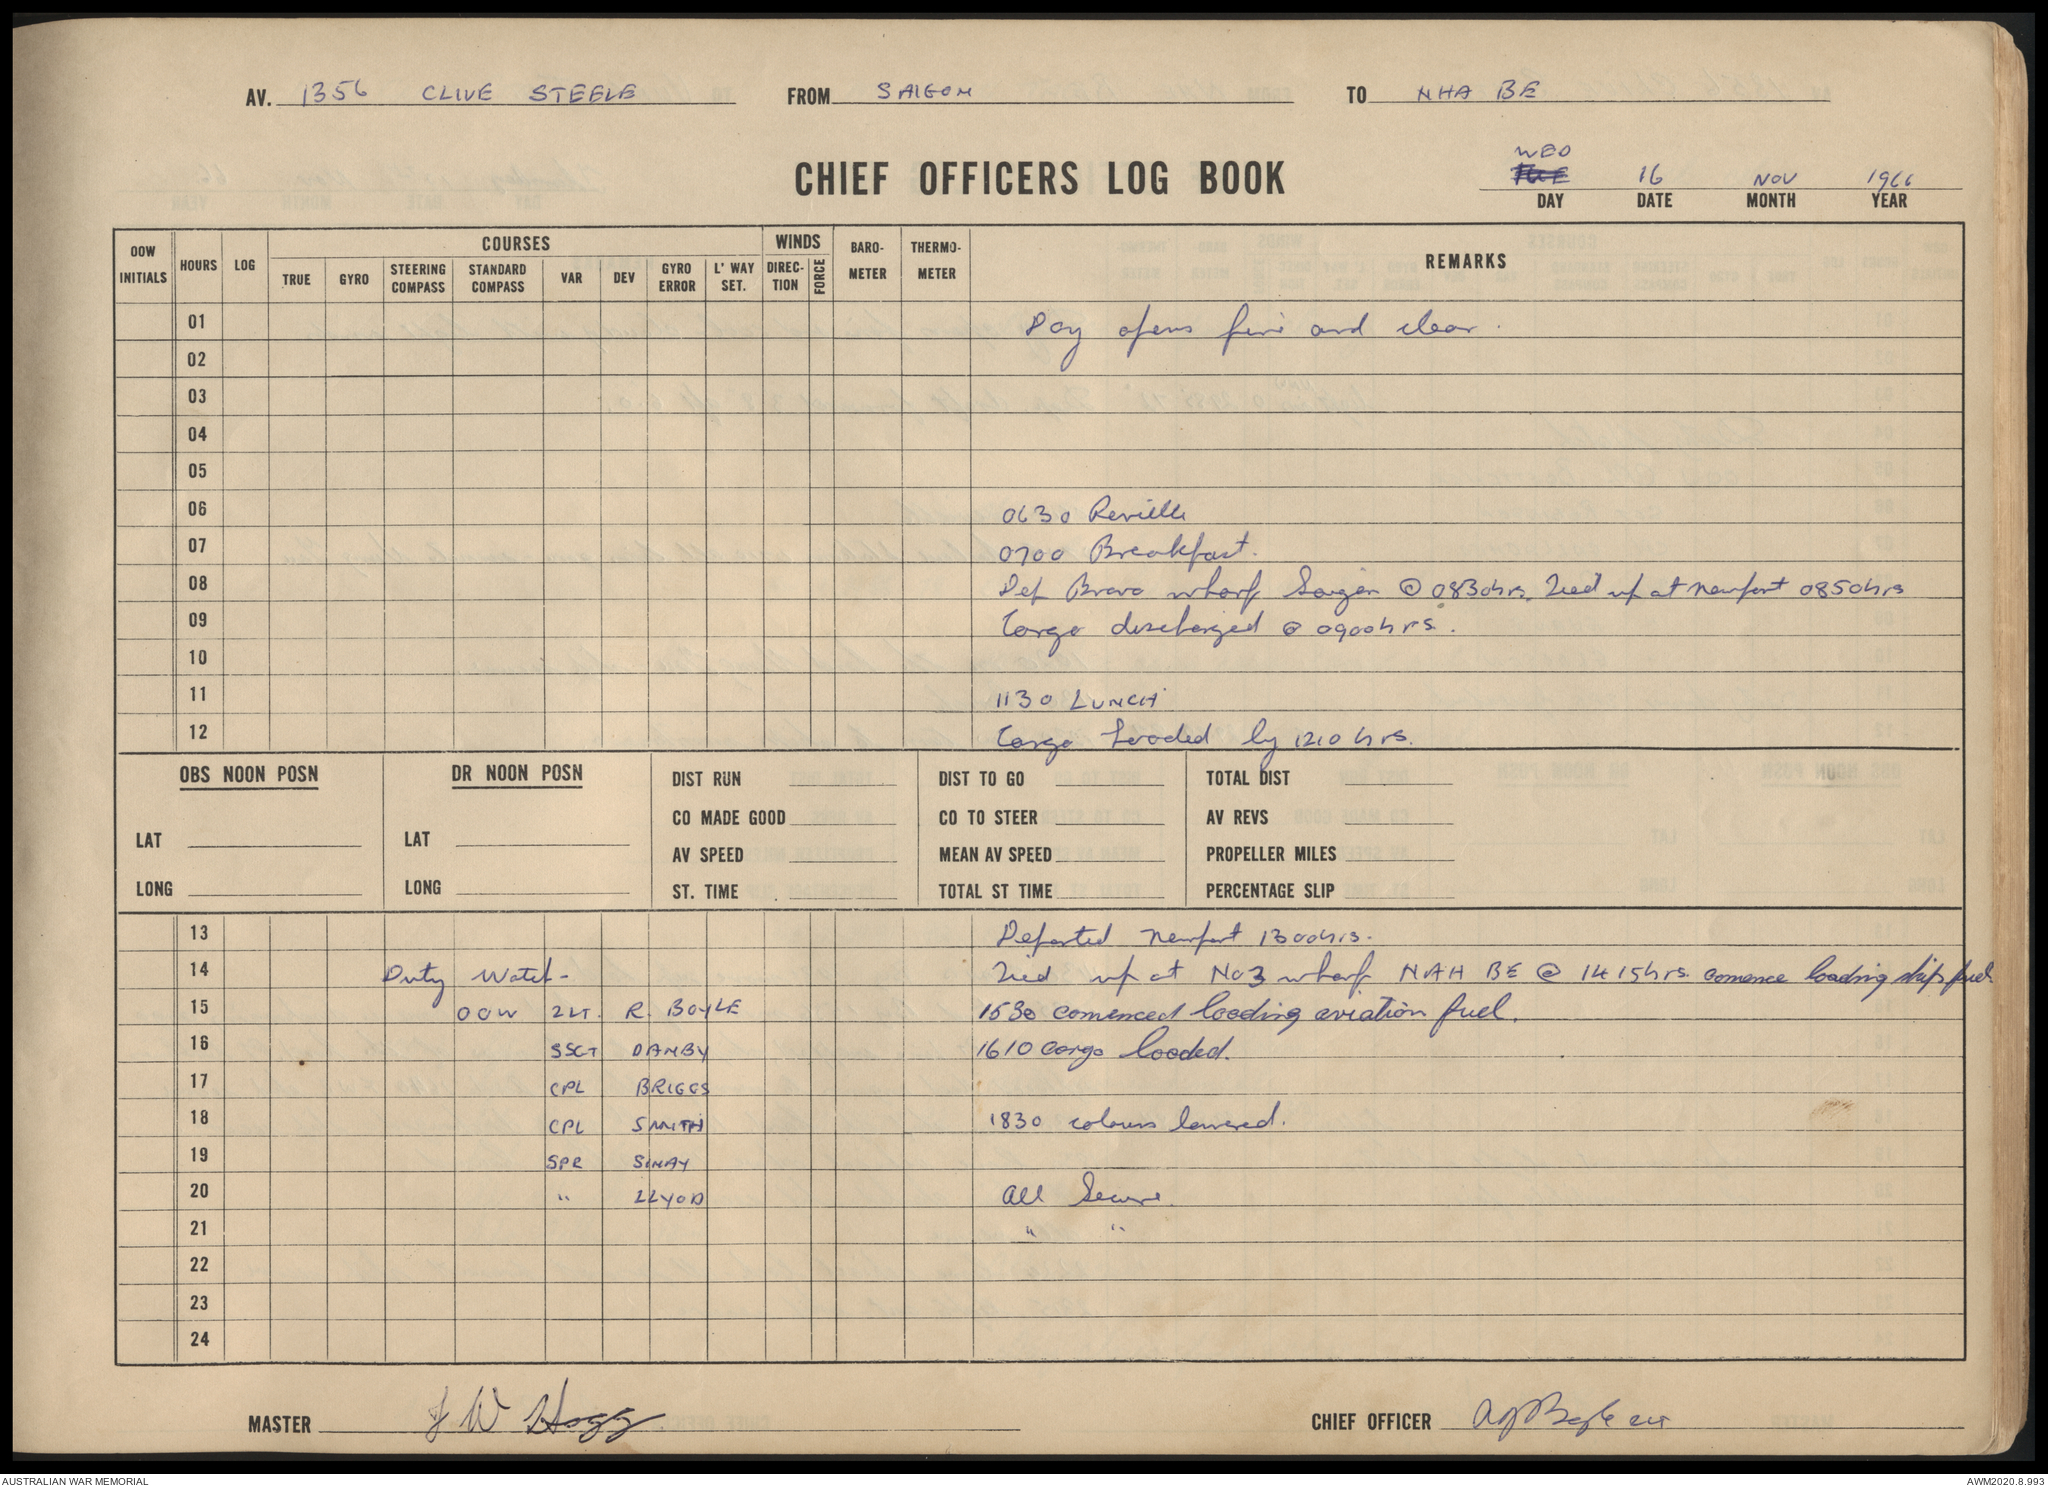 AV. 1356 CLIVE STEELE FROM SAIGON TO NHA BE
WED
CHIEF OFFICERS LOG BOOK TUE 16 NOV 1966
DAY DATE MONTH YEAR
OOW INITIALS HOURS LOG COURSES WINDS BARO-METER THERMO-METER REMARKS
TRUE GYRO STEERING COMPASS STANDARD COMPASS VAR DEV GYRO ERROR L' WAY SET. DIREC-TION FORCE
01 Day opens fine and clear.
02
03
04
05
06 0630 Reville
07 0700 Breakfast.
08 Dep Bravo wharf Saigon @ 0830hrs. Tied up at Newport 0850hrs
09 Cargo discharged @ 0900hrs.
10
11 1130 LUNCH
12 Cargo Loaded by 1210 hrs.
OBS NOON POSN DR NOON POSN DIST RUN DIST TO GO TOTAL DIST
CO MADE GOOD CO TO STEER AV REVS
LAT LAT AV SPEED MEAN AV SPEED PROPELLER MILES
LONG LONG ST. TIME TOTAL ST TIME PERCENTAGE SLIP
13 Departed Newport 1300hrs.
14 Duty Watch - Tied up at No3 wharf NAH BE @ 1415hrs. comence loading ships fuel.
15 OOW 2LT. R. BOYLE 1530 comenced loading aviation fuel.
16 SSGT DANBY 1610 cargo loaded.
17 CPL BRIGGS
18 CPL SMITH 1830 colours lowered.
19 SPR SINAY
20 " LLYOD All Secure.
21 " "
22
23
24
MASTER J W Hogg CHIEF OFFICER
AUSTRALIAN WAR MEMORIAL AWM2020.8.993